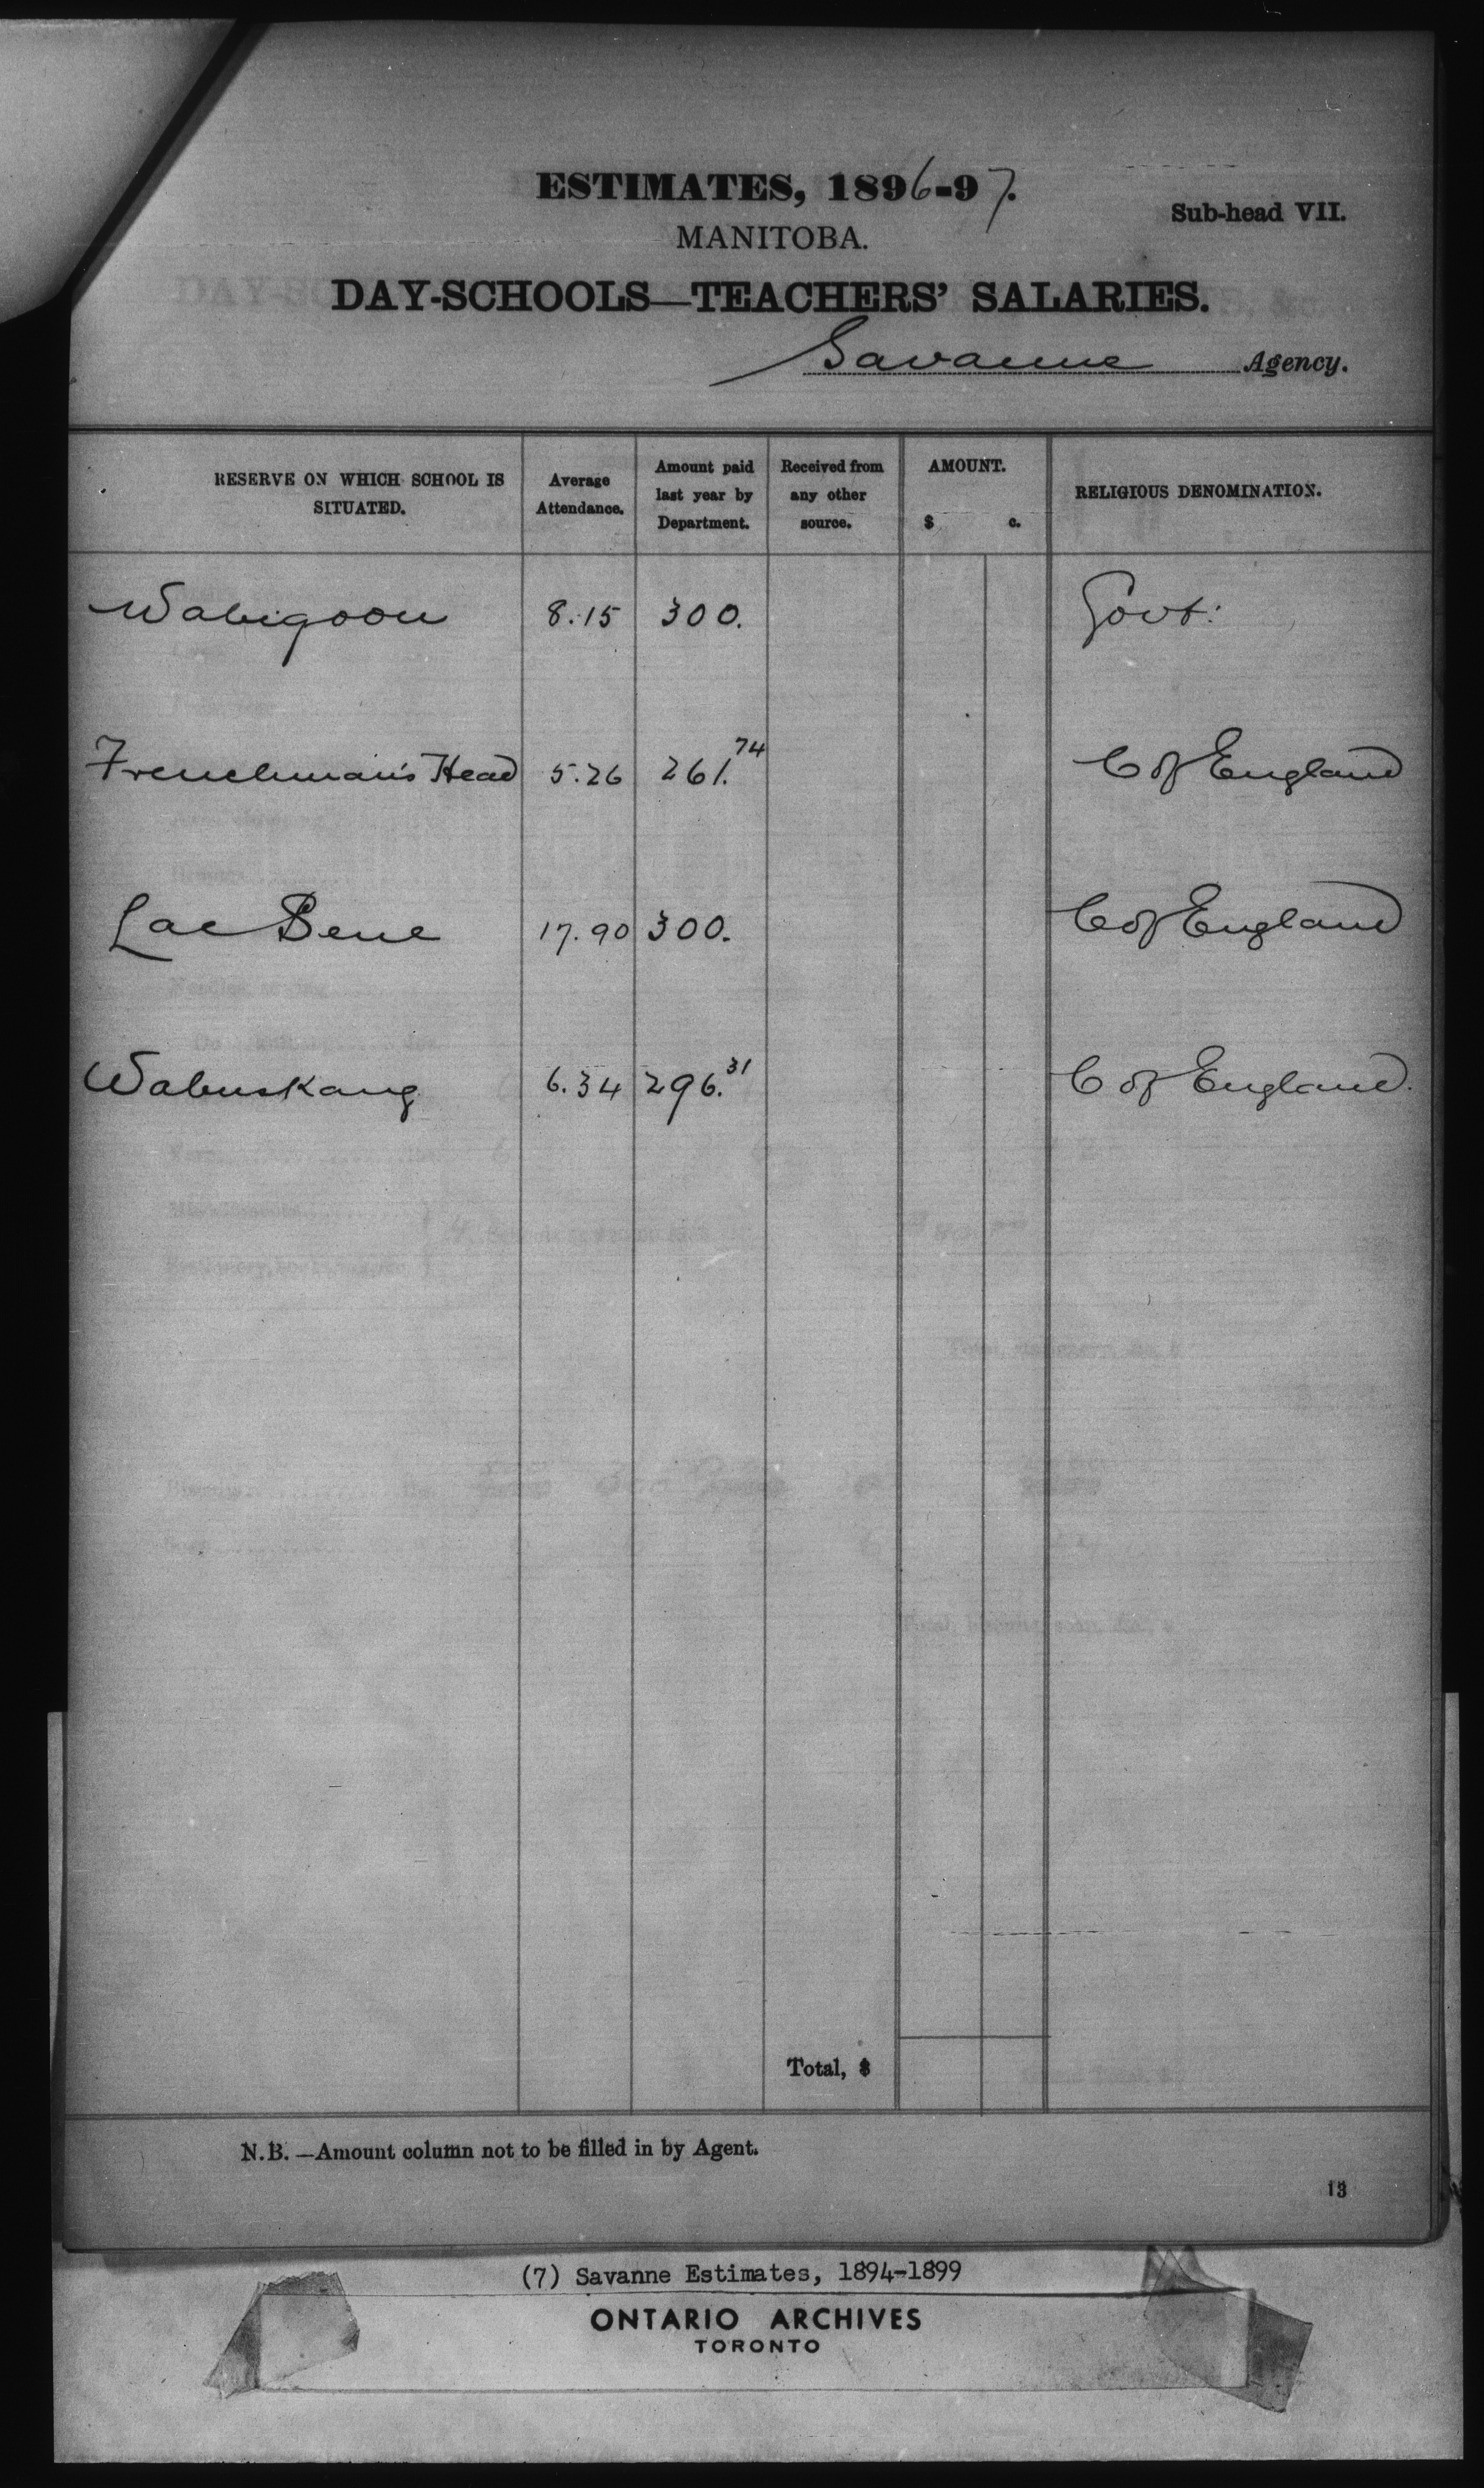 ESTIMATES, 1896-97.
Sub-head VII.
MANITOBA.
DAY-SCHOOLS—TEACHERS' SALARIES.
Savanne Agency.
RESERVE ON WHICH SCHOOL IS SITUATED.
Average Attendance.
Amount paid last year by Department.
Received from any other source.
AMOUNT.
$ c.
RELIGIOUS DENOMINATION.
Wabigoon 8.15 300. Govt:
Frenchman's Head 5.26 261.74 C of England
Lac Seul 17.90 300. C of England
Wabuskang 6.34 296.31 C of England.
Total, $
N.B.—Amount column not to be filled in by Agent.
13
(7) Savanne Estimates, 1894-1899
ONTARIO ARCHIVES
TORONTO